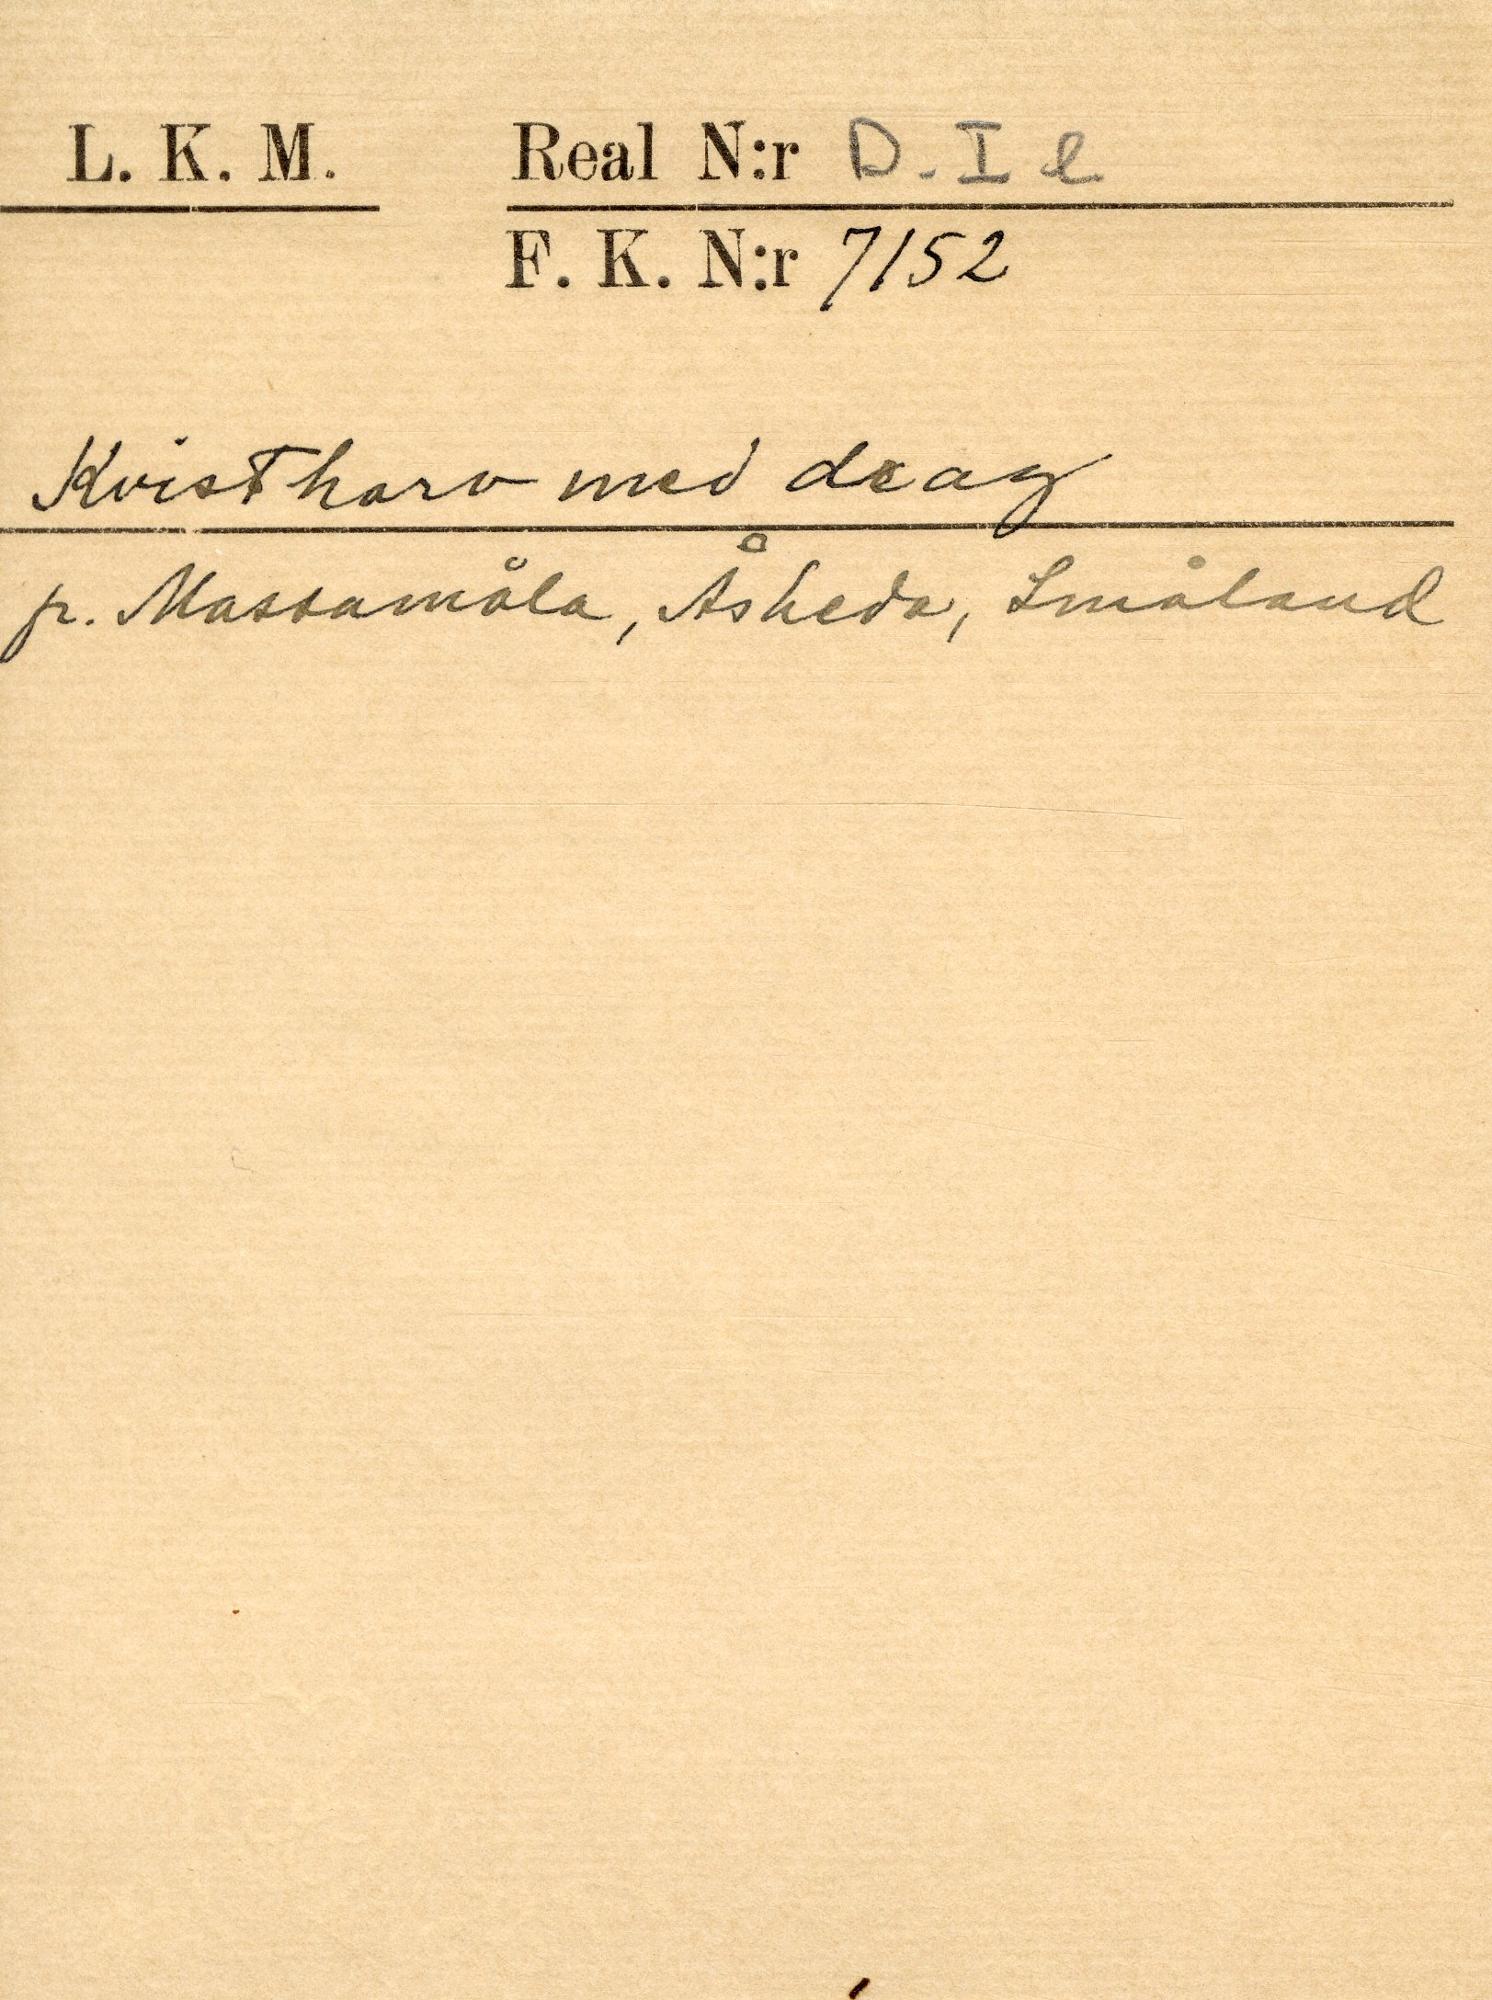 L. K. M. Real N:r D. I e
F. K. N:r 7152
Kvistharv med drag
fr. Massamåla, Åsheda, Småland